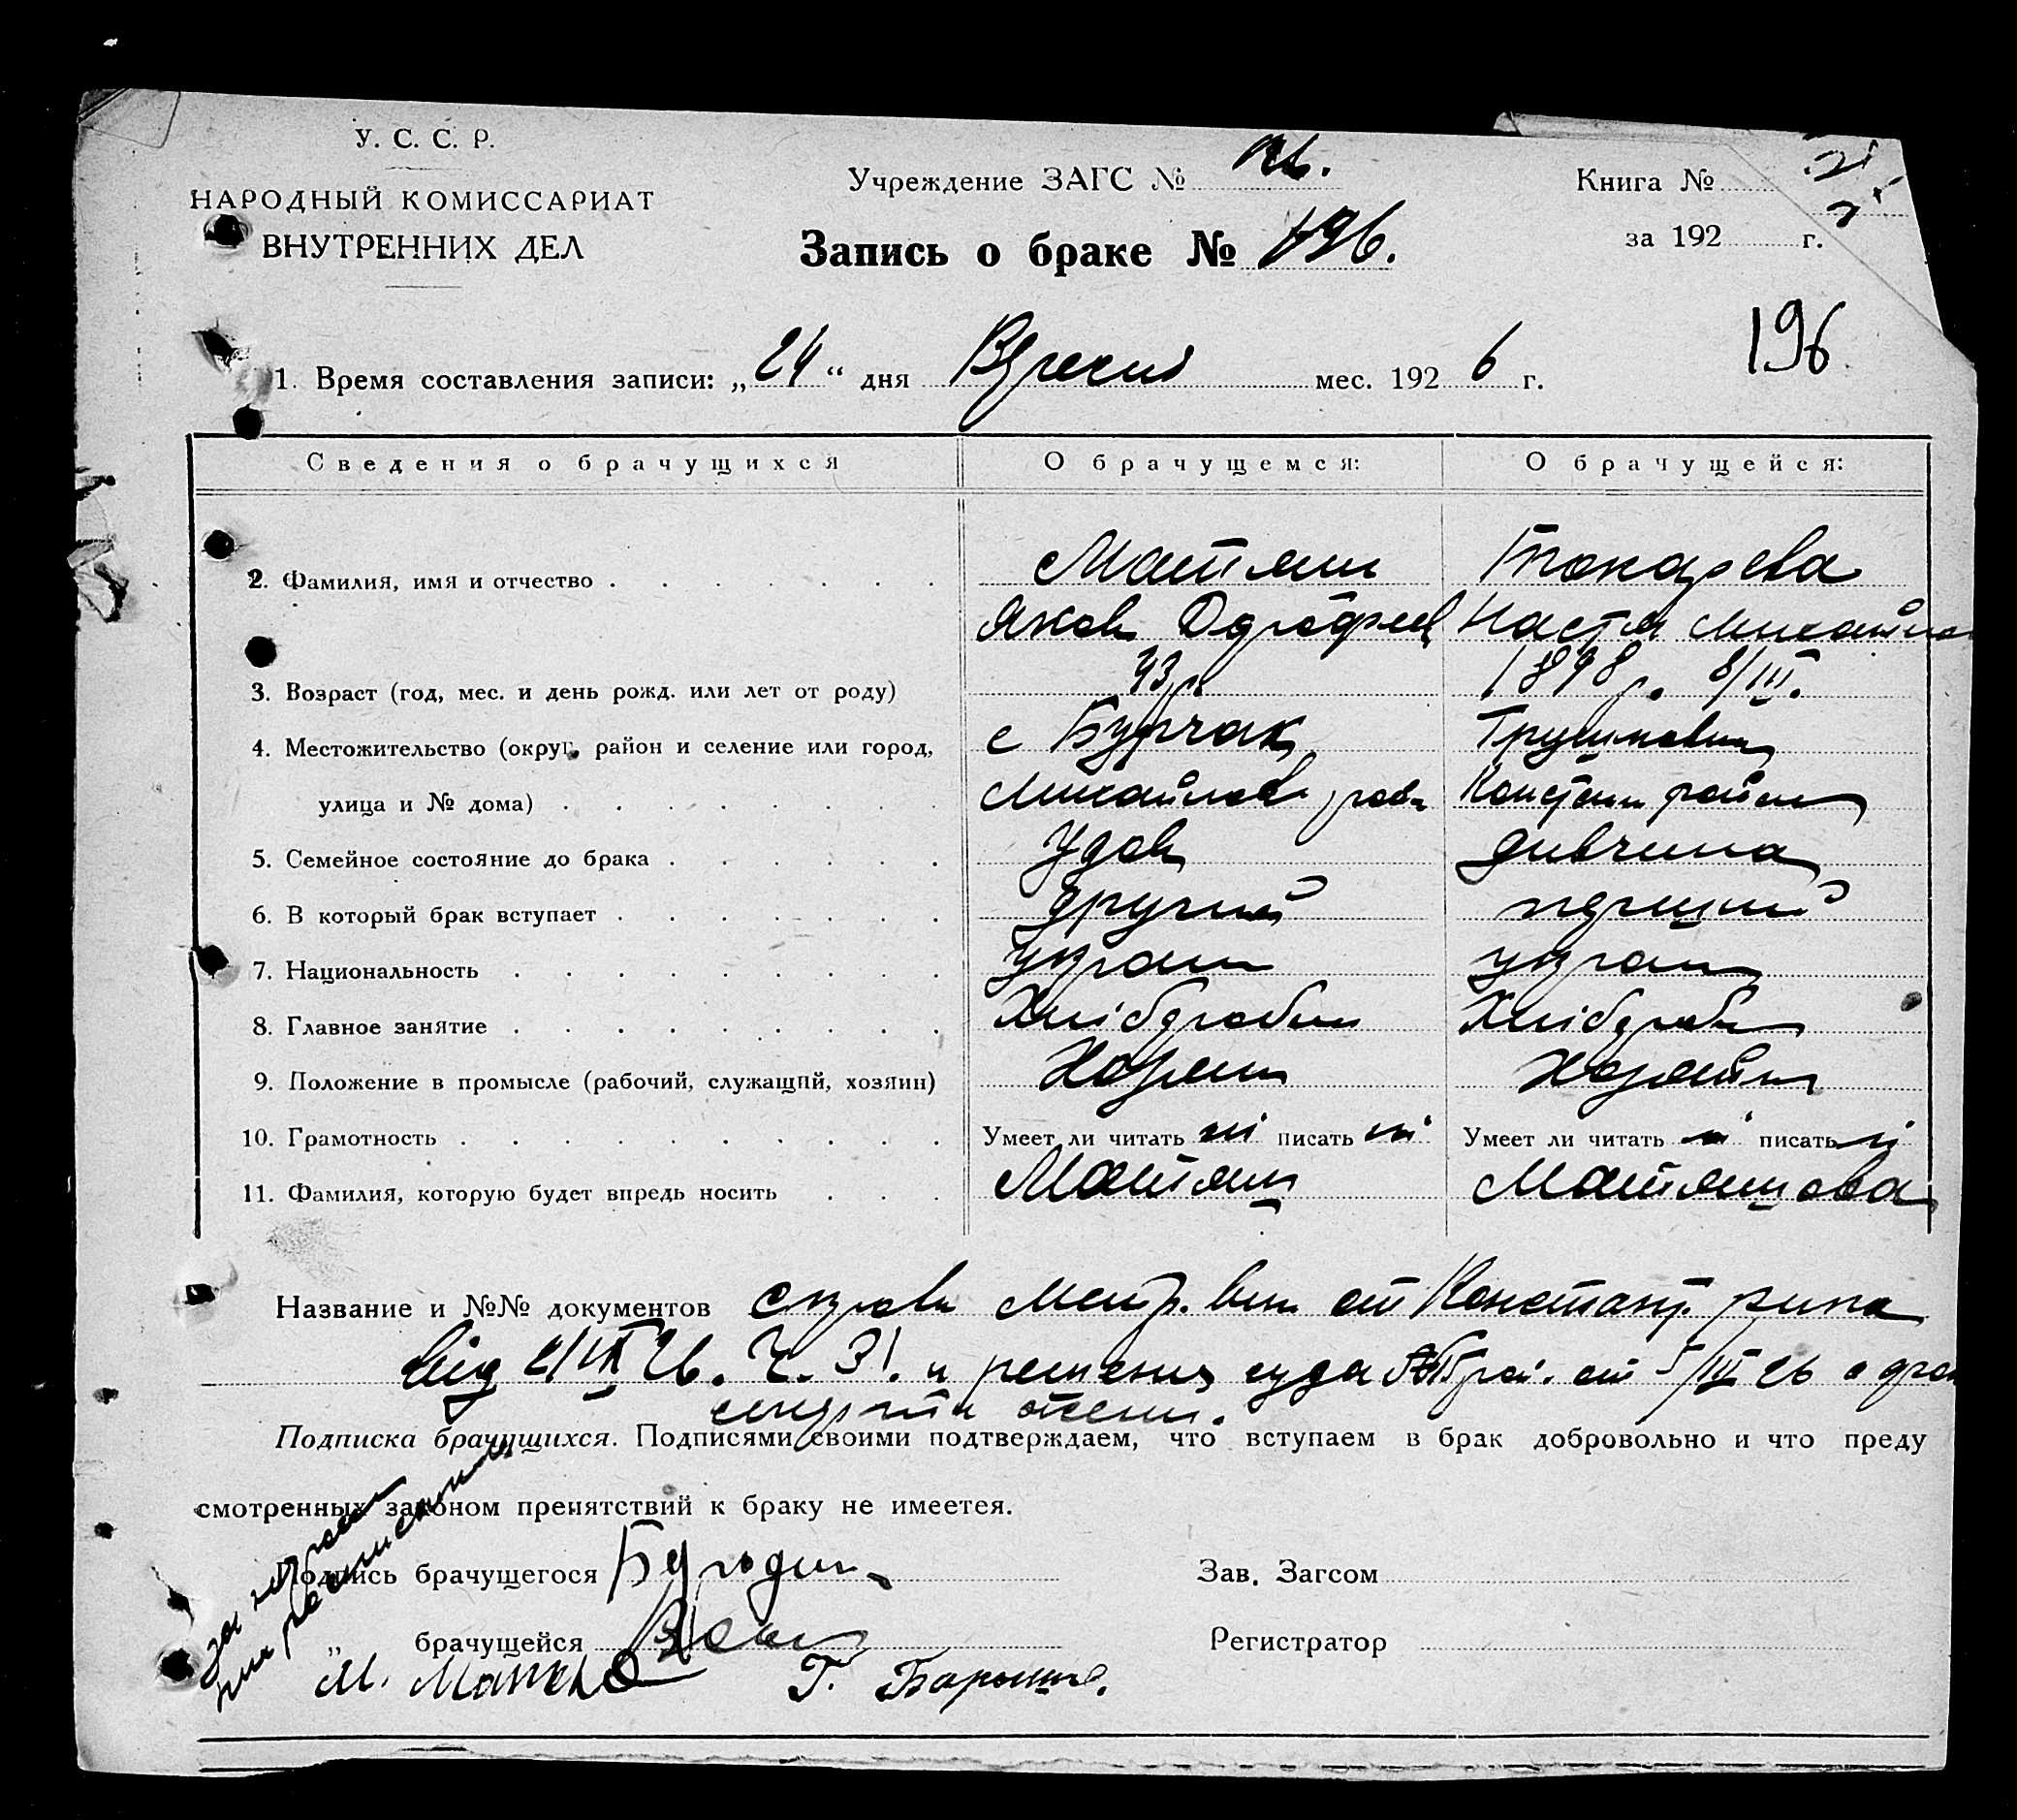 У. С. С. Р.
НАРОДНЫЙ КОМИССАРИАТ
ВНУТРЕННИХ ДЕЛ
Учреждение ЗАГС №
Книга №
за 192 г.
Запись о браке № 196.
196.
1. Время составления записи: „24“ дня Вересня мес. 1926 г.
Сведения о брачущихся О брачущемся: О брачущейся:
2. Фамилия, имя и отчество Матяш Токарева
Яков Настя
3. Возраст (год, мес. и день рожд. или лет от роду) 43 р. 1898 р. 8/III.
4. Местожительство (округ, район и селение или город, с Бурчак
улица и № дома) Михайлов Констант район
5. Семейное состояние до брака Удов дивчина
6. В который брак вступает другий перший
7. Национальность украин украин
8. Главное занятие Хлібороб Хлібороб
9. Положение в промысле (рабочий, служащий, хозяин) Хозяин Хозяйка
10. Грамотность Умеет ли читать ні писать ні Умеет ли читать ні писать ні
11. Фамилия, которую будет впредь носить Матяш Матяшова
Название и №№ документов метр. от Констант.
від IX 26. Ч. 31. и решения суда от 5/III 26 о
Подписка брачущихся. Подписями своими подтверждаем, что вступаем в брак добровольно и что преду
смотренных законом препятствий к браку не имеется.
за
Подпись брачущегося Зав. Загсом
„ брачущейся Регистратор
М. Г.